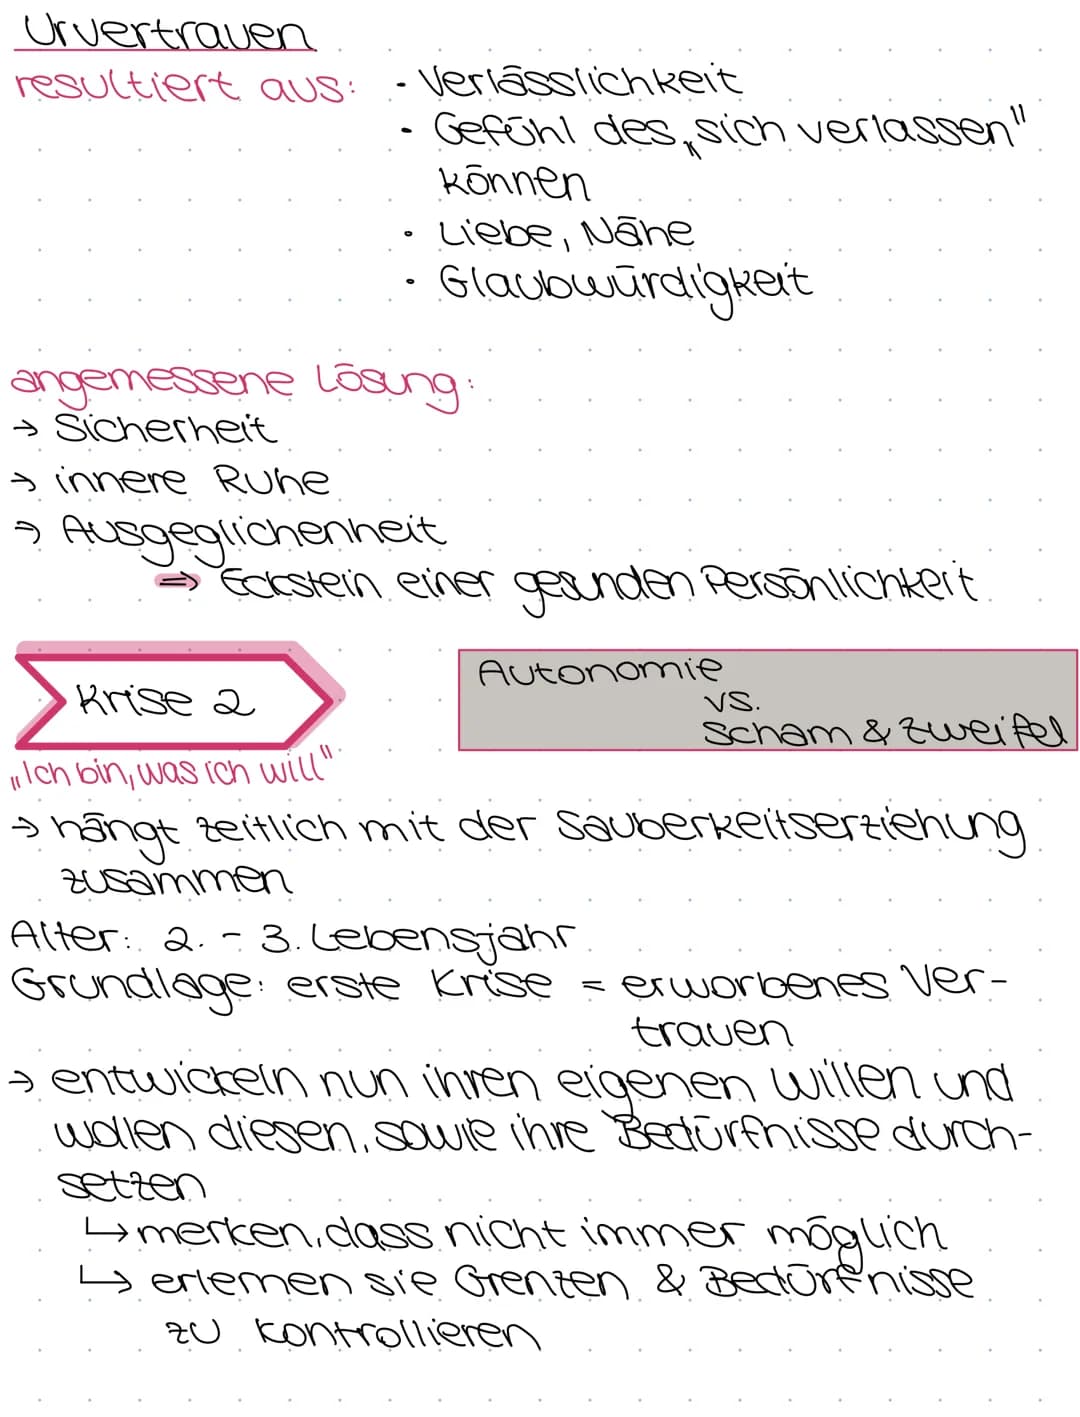 Urvertrauen
resultiert aus: • Verlässlichkeit
• Gefühl des „sich verlassen"
können
• Liebe, Nähe
• Glaubwürdigkeit
angemessene Lösung:
→ Sicherheit
→ innere Ruhe
→ Ausgeglichenheit
⇒ Eckstein einer gesunden Persönlichkeit
Krise 2
Autonomie
vs.
Scham & Zweifel
„Ich bin, was ich will"
→ hängt zeitlich mit der Sauberkeitserziehung
zusammen
Alter: 2. - 3. Lebensjahr
Grundlage: erste Krise = erworbenes Ver-
trauen
→ entwickeln nun ihren eigenen Willen und
wollen diesen, sowie ihre Bedürfnisse durch-
setzen
↳ merken, dass nicht immer möglich
↳ erlernen sie Grenzen & Bedürfnisse
zu kontrollieren